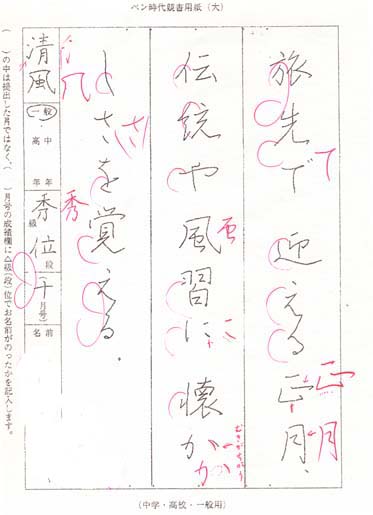 ペン時代競書用紙(大)
旅先で迎える正月、
て
正
月
伝統や風習に懐か
虫
こ
むきがちがう
か
しさを覚える。
さ
清風
風
一般
高中
年年
秀級
秀
位段
十月号
名前
( )の中は提出した月ではなく、( )月号の成績欄に△級(段)位でお名前がのったかを記入します。
(中学・高校・一般用)